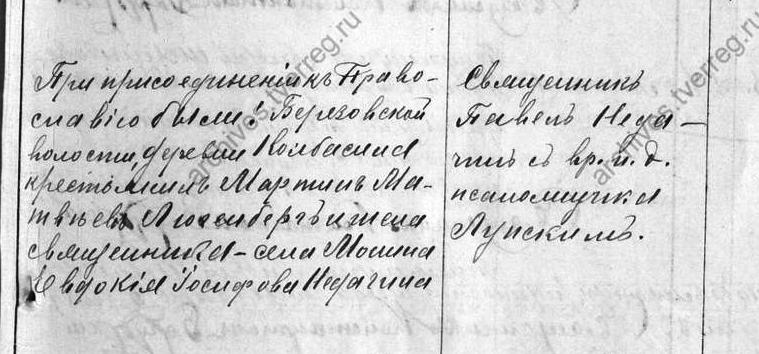 При присоединеніи къ Право-
славію были: Березовской
волости, деревни Колбасина
крестьянинъ Мартинъ Ма-
твѣевъ Люсенбергъ и жена
священника - села Мошна
Евдокія Іосифова Недачина
Священникъ
Павелъ Неда-
чинъ съ вр. и. д.
псаломщика
Лупскимъ.
archives.tverreg.ru
archives.tverreg.ru